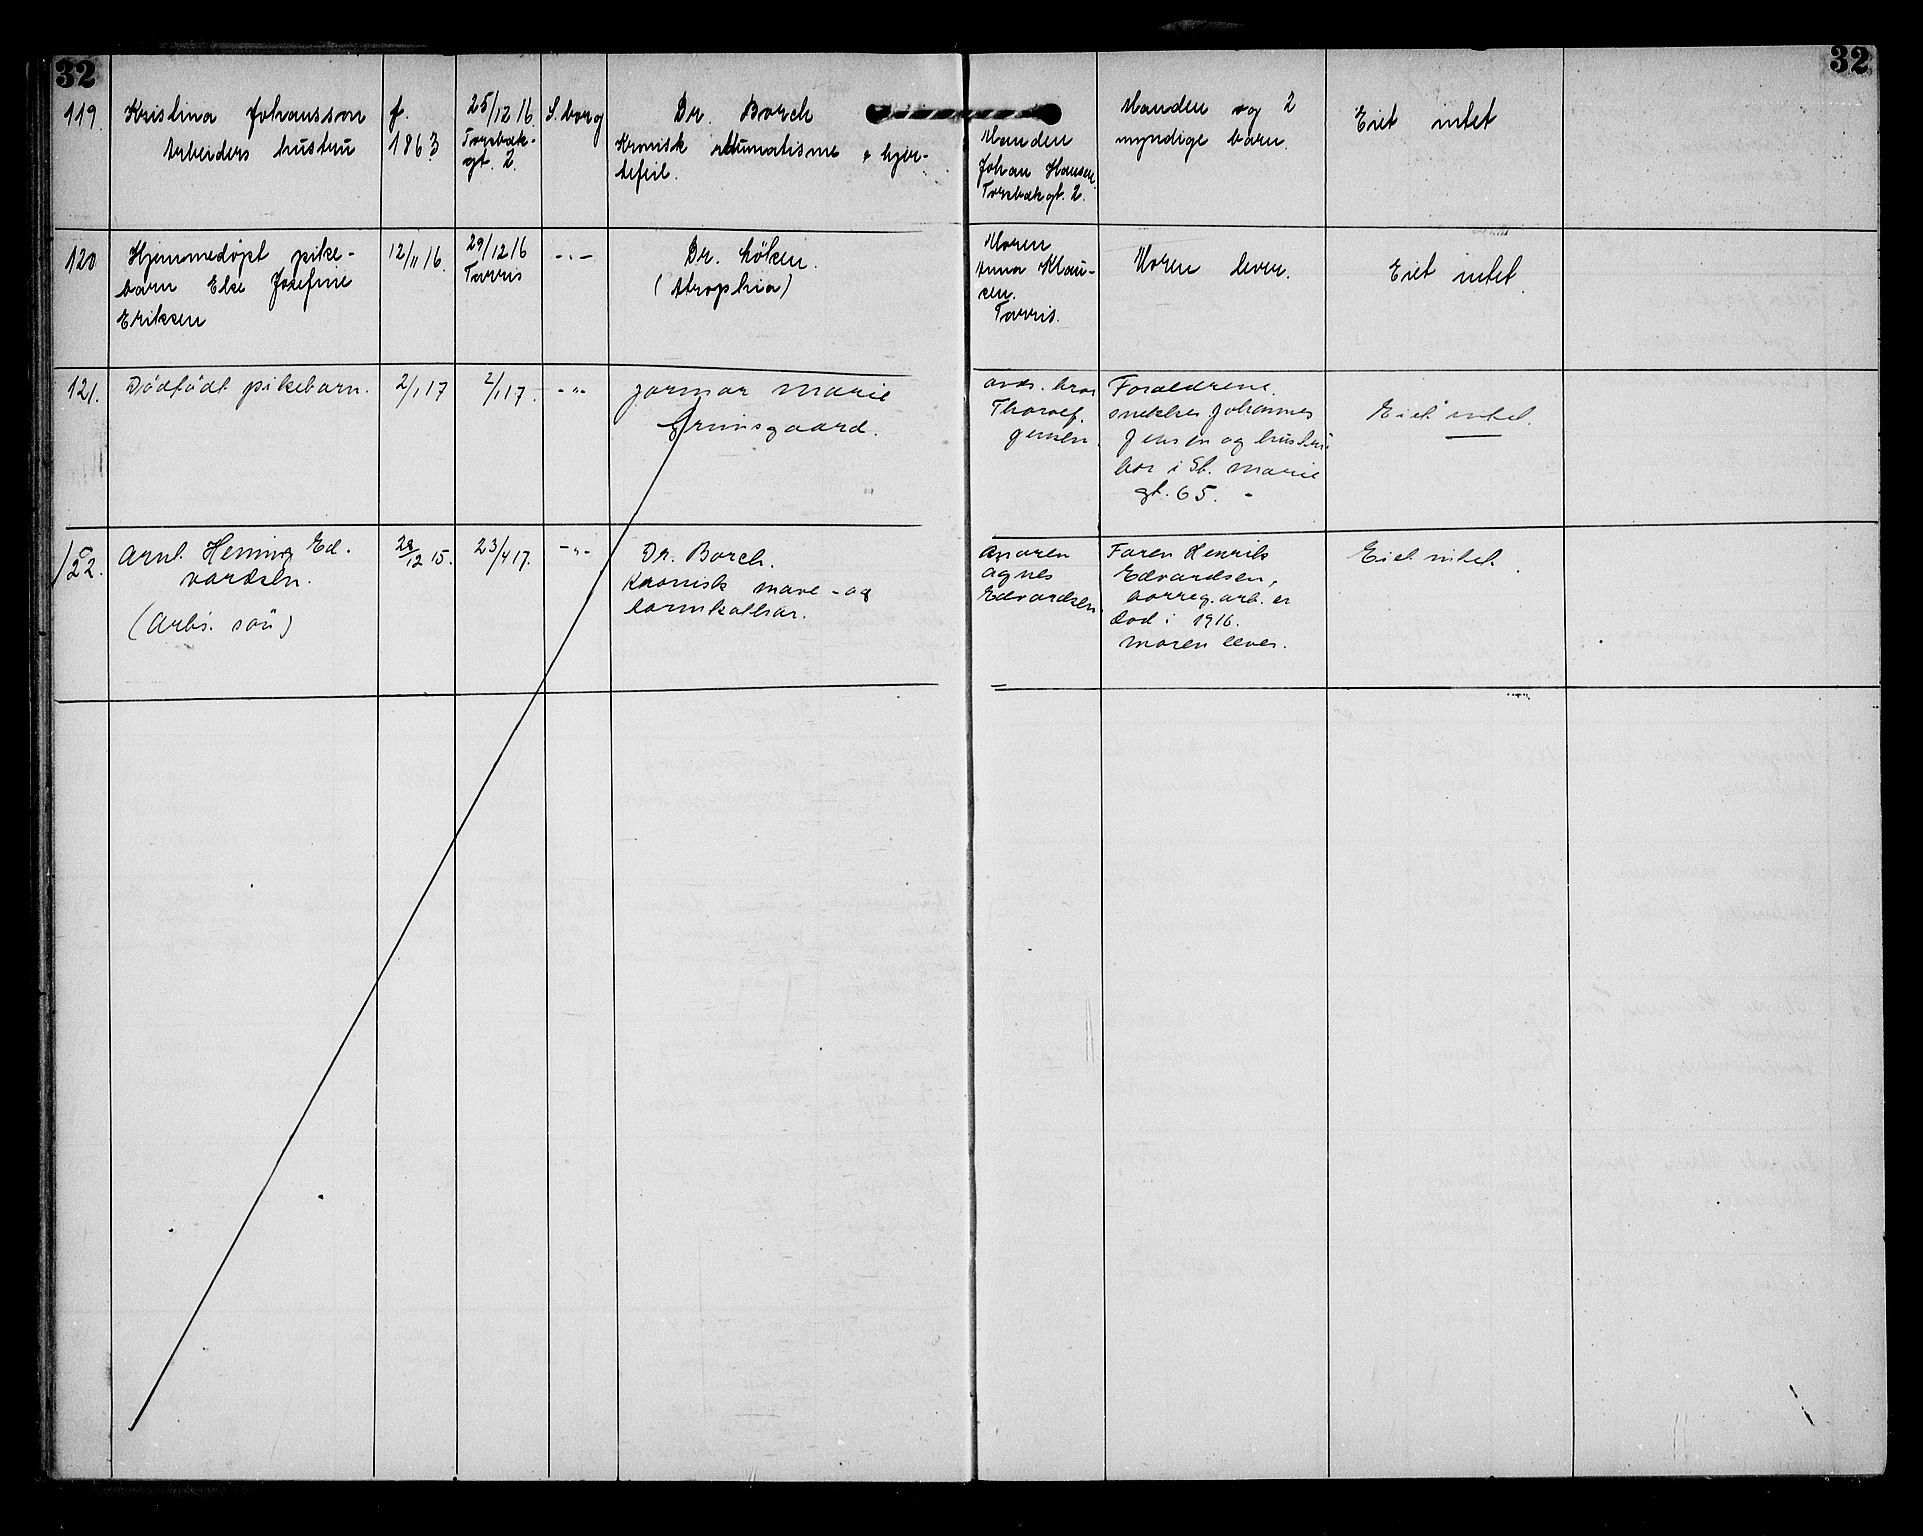 32
32
119.
Kristina Johansson
Arbeiders hustru
f.
1863
25/12 16
Torsbæk-
gt. 2.
S. borg
Dr. Borch
Kronisk rheumatisme & hjer-
tefeil.
Manden
Johan Hansen.
Torsbækgt. 2.
Manden og 2
myndige barn.
Eiet intet
120
Hjemmedøpt pike-
barn Else Josefine
Eriksen
12/11 16.
29/12 16
Tarris
-"-
Dr. Löken.
(Atrophia)
Moren
Anna Klau-
sen.
Tarris.
Moren lever.
Eiet intet.
121.
Dødfødt pikebarn.
2/1 17
2/1 17.
-"-
jormor Marie
Grimsgaard.
Thoralf
Jensen.
Forældrene
snekker Johannes
Jensen og hustru
bor i St. Marie
gt. 65.
Eiet intet.
122.
Arnt Henning Ed-
vardsen.
(Arb's. søn)
28/12 15.
23/4 17.
-"-
Dr. Borch.
Kronisk mave- og
tarmkathar.
Moren
Agnes
Edvardsen.
Faren Henrik
Edvardsen,
borreg. arb. er
død i 1916.
Moren lever.
Eiet intet.